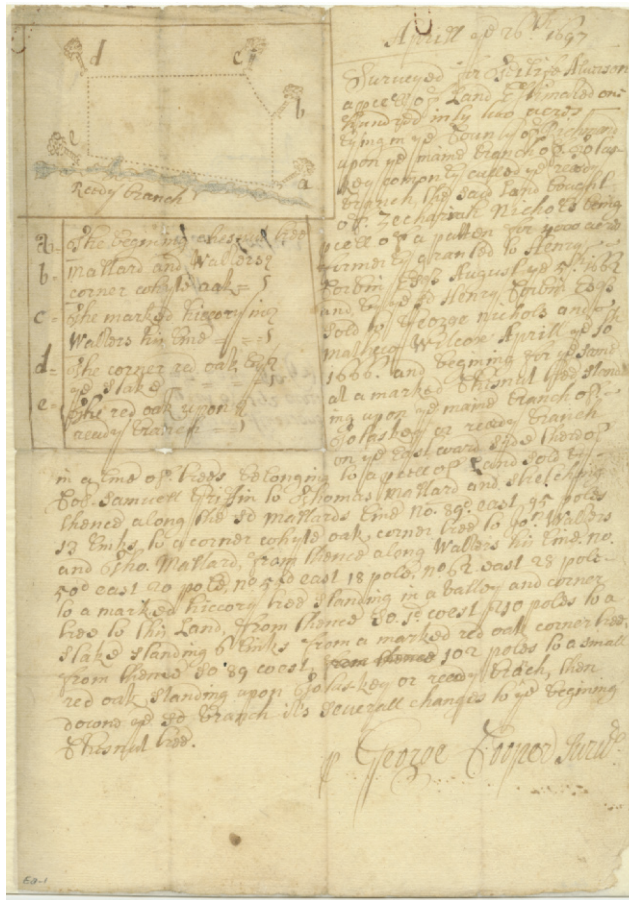 d
c
b
e
a
Reedy branch
a = The begining chesnut tree
b = Mallard and Wallers
corner whyte oak =
c = The marked hiccory in
Wallers his Line = =
d = The corner red oak by
ye stake
e = The red oak upon
reedy branch
Aprill ye 26th 1697
Surveyed for
a pcell of Land Estimated one
hundred
Lying in ye County of Richmond
upon ye maine branch of
comonly called ye reedy
branch, the said Land bought
of Zechariah Nichols being
pcell of a patten for acres
formerly granted to Henry
Corbin Esqr August ye 5th 1662
and by ye sd Henry Corbin Esqr
sold to George Nichols and
Wilcox Aprill ye
1666. and begining for ye same
at a marked Chesnut tree stand
ing upon ye maine branch of
or reedy branch
on ye east ward syde thereof
in a Line of trees belonging to a pcell of Land sold by
Samuell Griffin to Thomas Mallard and stretching
thence along the sd Mallards Line no. 89d east 95 poles
13 Links to a corner whyte oak corner tree to Wallers
and Tho. Mallard, from thence along Wallers his Line, no.
50d east 20 pole, no east 18 pole, no 62 east 28 pole
to a marked hiccory tree standing in a valley and corner
tree to this Land, from thence so. west poles to a
stake standing 6 Links from a marked red oak corner tree,
from thence so 89 west, from thence 102 poles to a small
red oak standing upon or reedy branch, then
downe ye sd branch it's severall changes to ye begining
Chesnut tree.
p George Cooper Survr